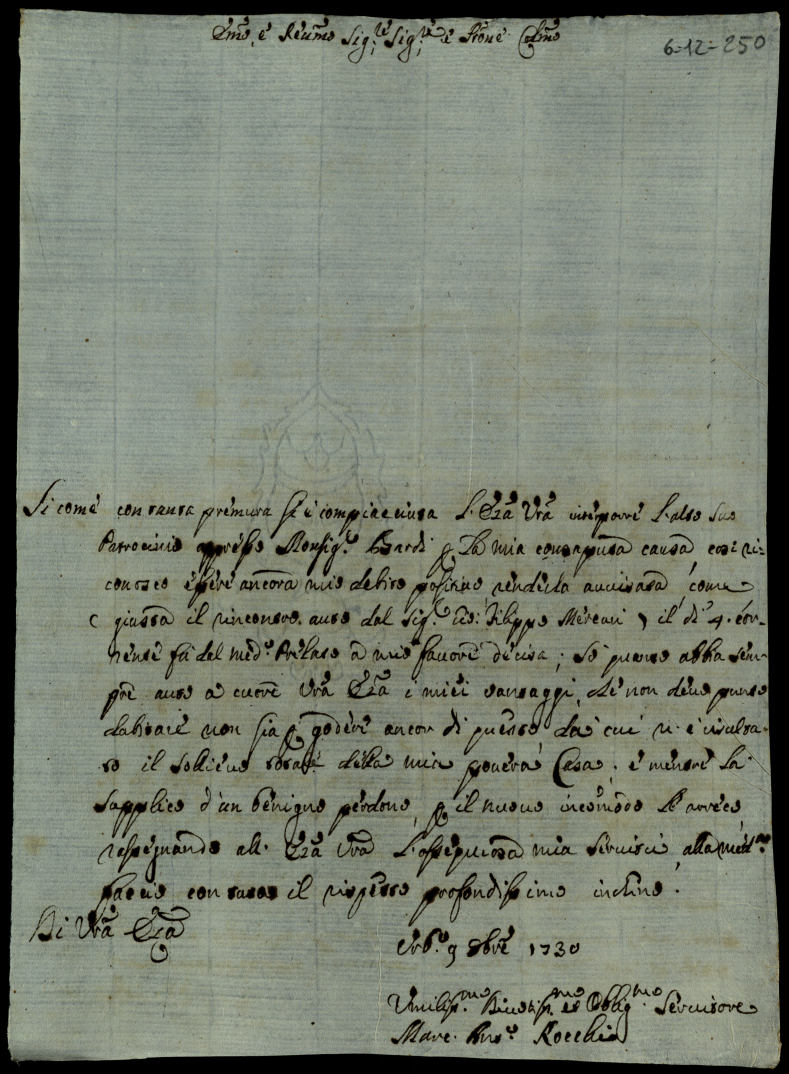 Em̃o, e Reũmo Sig:re Sig:re e Prone Colmo
6-12-250
Si come con tanta premura si è compiacciuta l'Eza Vra interporre l'alto suo
Patrocinio appresso Monsig.re Bardi p la mia consaputa causa, così ri-
conosco essere ancora mio debito positivo renderla avvisata, come
giusta il rincontro auto dal Sig.r Filippo Mereari, il di 4. cor-
rente fù dal med.o Prelato à mio favore decisa; Sò quanto abbia sem-
pre auto à cuore Vra Eza i miei vantaggi, nè non devo punto
dubitare non sia p godere ancor di questo, da cui n'è risulta-
to il sollievo della mia povera Casa; e mentre la
supplico d'un benigno perdono, p il nuovo incomodo le arreco,
rassegnando all' Eza Vra l'ossequiosa mia servitù, alla med.ma
faccio con tutto il rispetto profondissimo inchino.
Di Vra Eza
Urb.o 9 Xbre 1730
Umiliss.mo Divotiss.mo et Obblig.mo Servitore
Marc' Ant.o Rocchi